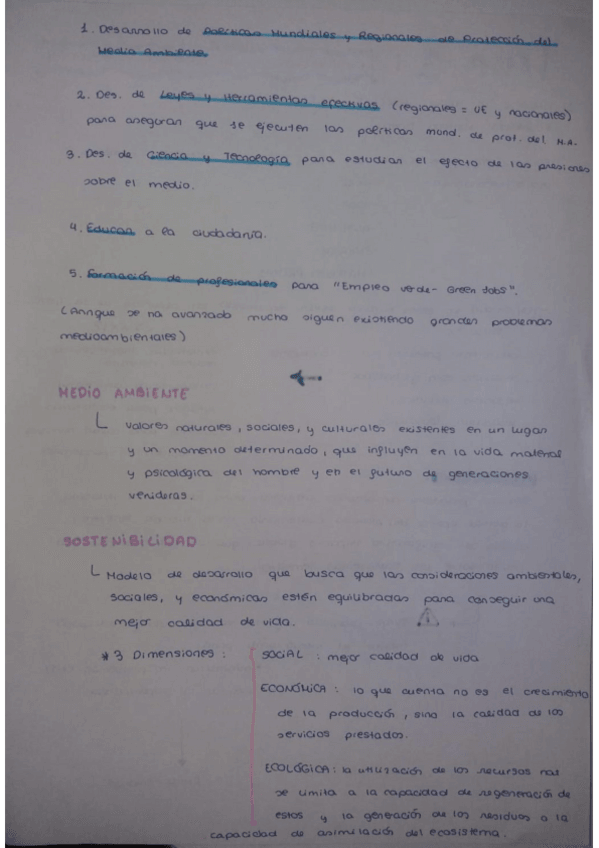 1. Desarrollo de Políticas Mundiales y Regionales de Protección del
Medio Ambiente.
2. Des. de Leyes y Herramientas efectivas (regionales = UE y nacionales)
para aseguran que se ejecuten las políticas mund. de prot. del M.A.
3. Des. de Ciencia y Tecnología para estudiar el efecto de las presiones
sobre el medio.
4. Educar a la ciudadanía.
5. Formación de profesionales para "Empleo verde - Green Jobs".
(Aunque se ha avanzado mucho siguen existiendo grandes problemas
medioambientales)
MEDIO AMBIENTE
Valores naturales, sociales, y culturales existentes en un lugar
y un momento determinado, que influyen en la vida material
y psicológica del hombre y en el futuro de generaciones
venideras.
SOSTENIBILIDAD
Modelo de desarrollo que busca que las consideraciones ambientales,
sociales, y económicas estén equilibradas para conseguir una
mejor calidad de vida.
* 3 Dimensiones :
SOCIAL : mejor calidad de vida
ECONÓMICA : lo que cuenta no es el crecimiento
de la producción, sino la calidad de los
servicios prestados.
ECOLÓGICA : la utilización de los recursos nat
se limita a la capacidad de regeneración de
estos y la generación de los residuos a la
capacidad de asimilación del ecosistema.